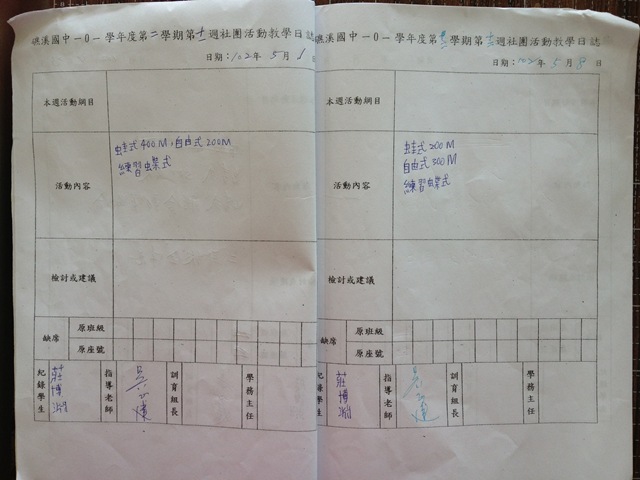 礁溪國中一0一學年度第二學期第十二週社團活動教學日誌
日期：102年5月1日
本週活動綱目
活動內容
蛙式400M，自由式200M
練習蝶式
檢討或建議
缺席
原班級
原座號
紀錄學生
莊博淵
指導老師
訓育組長
學務主任
礁溪國中一0一學年度第二學期第十三週社團活動教學日誌
日期：102年5月8日
本週活動綱目
活動內容
蛙式200M
自由式300M
練習蝶式
檢討或建議
缺席
原班級
原座號
紀錄學生
莊博淵
指導老師
訓育組長
學務主任